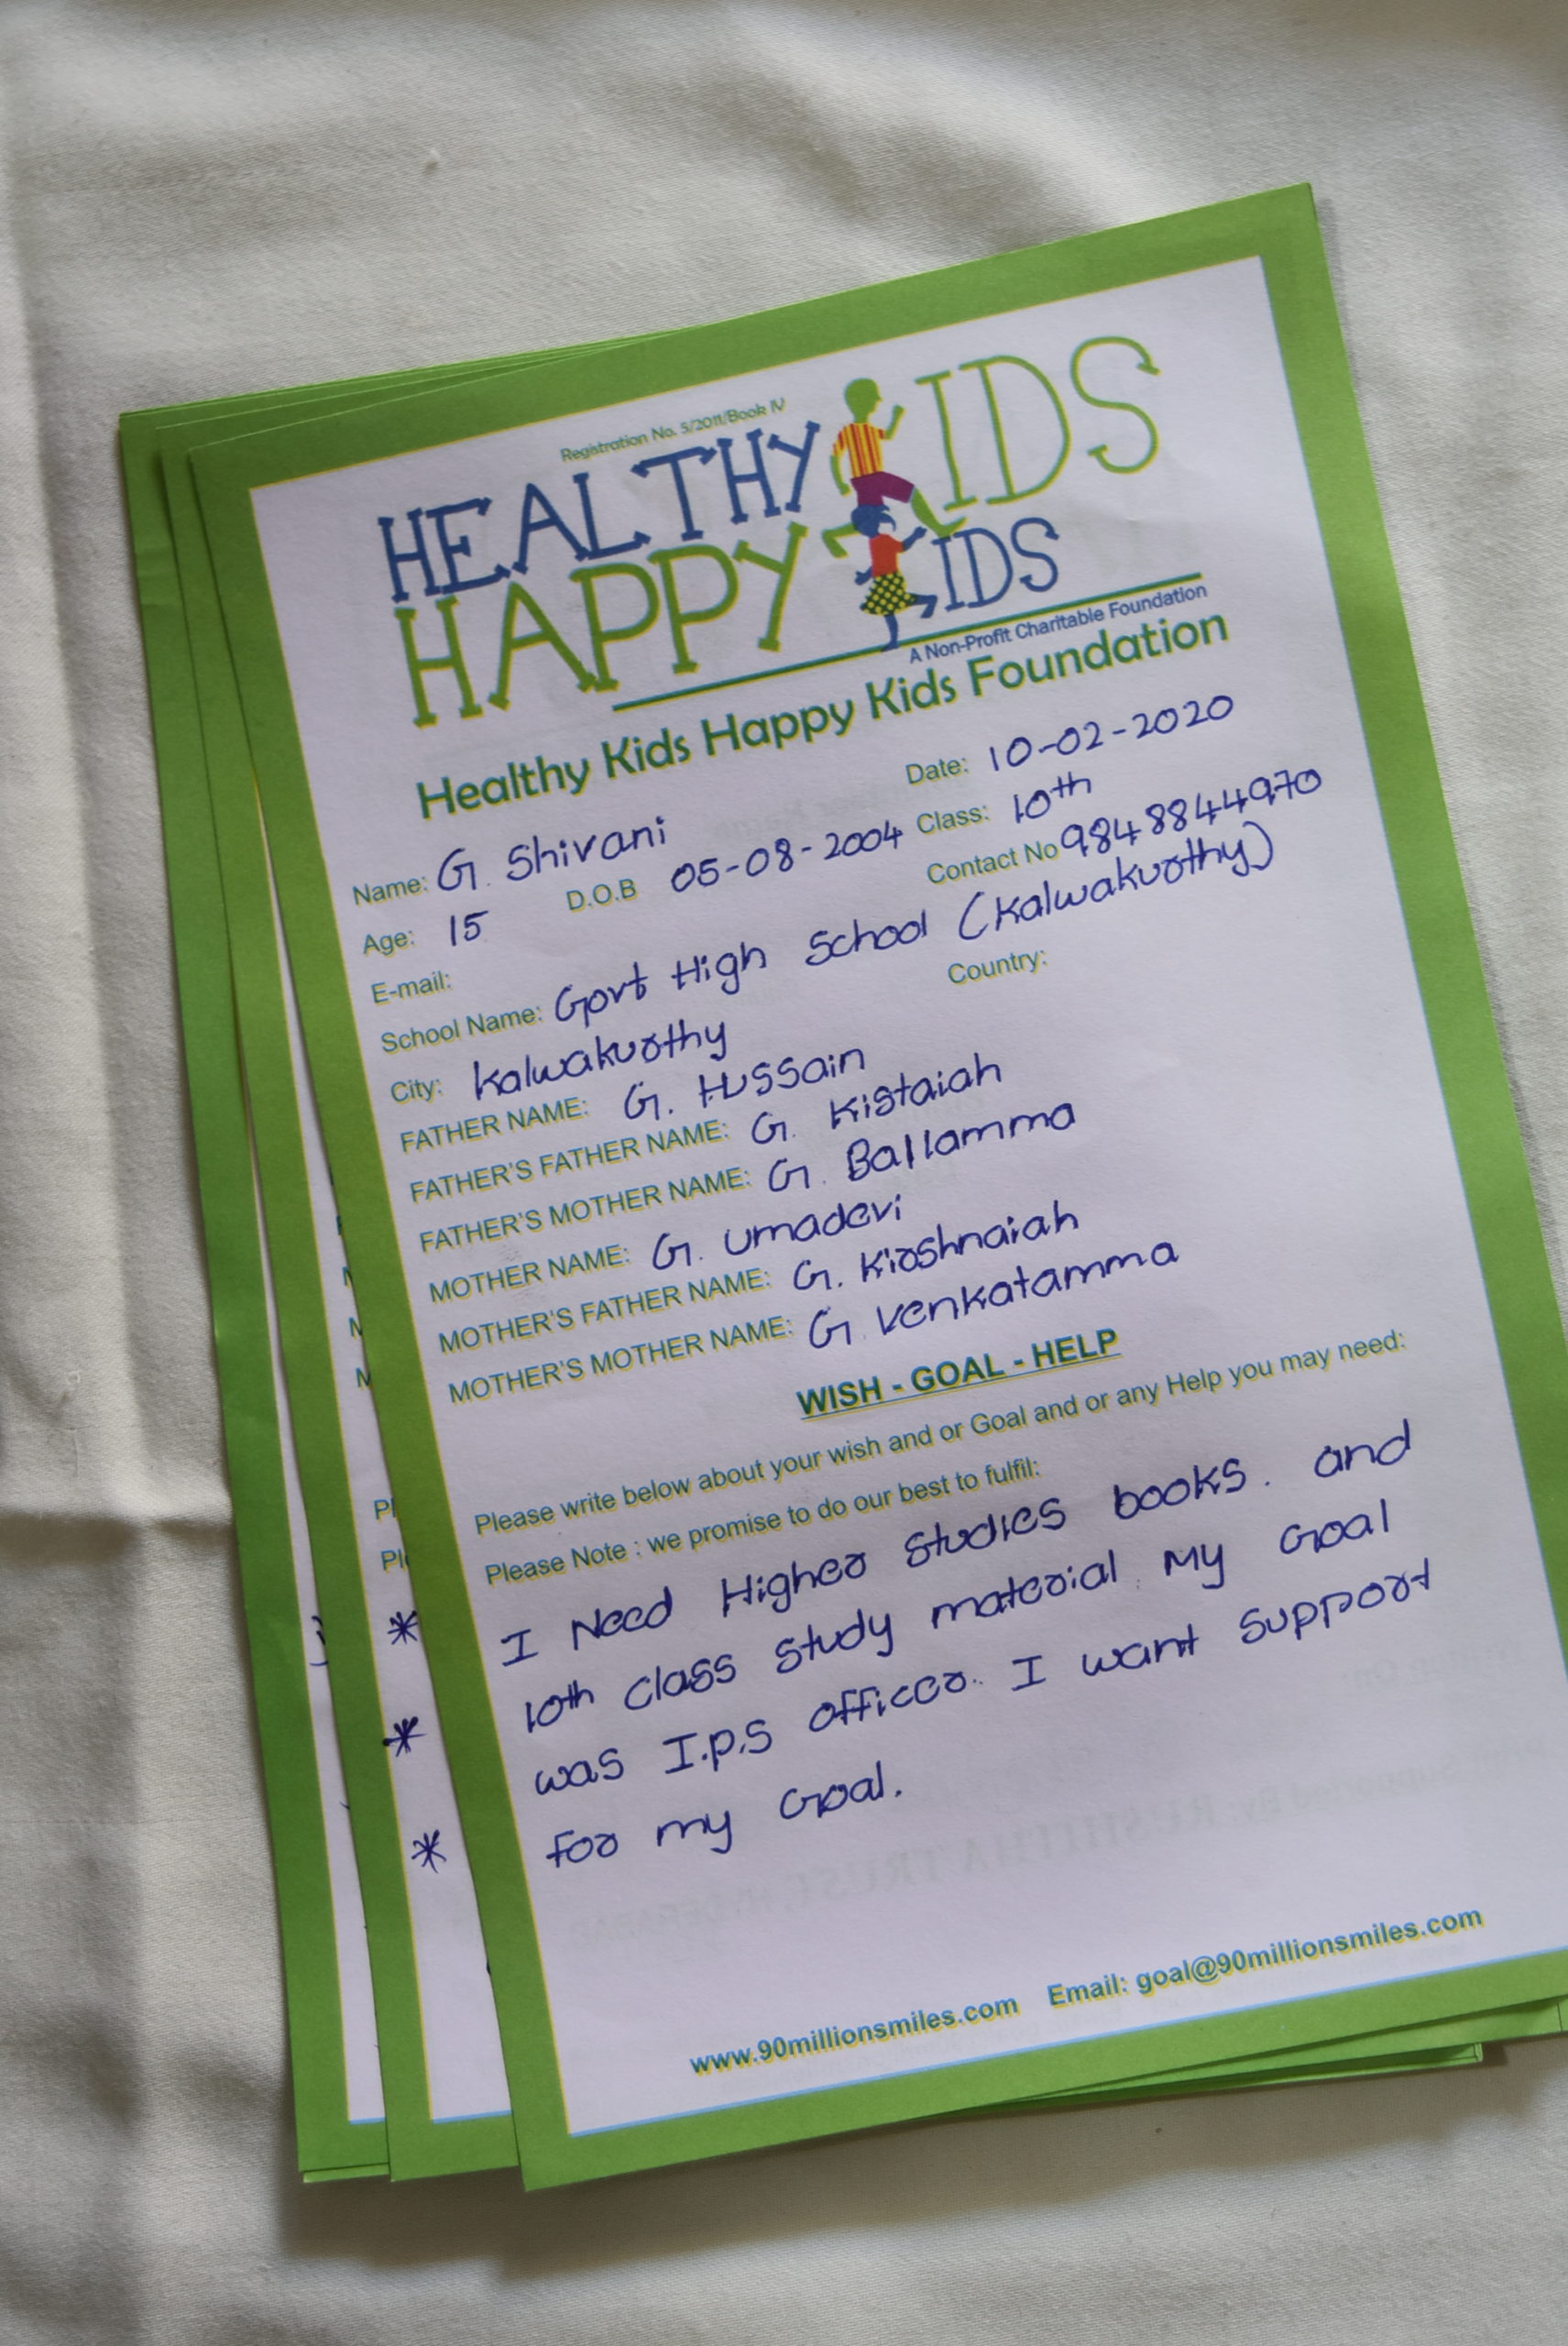 Registration No. 5/2011/Book IV
HEALTHY KIDS
HAPPY KIDS
A Non-Profit Charitable Foundation
Healthy Kids Happy Kids Foundation
Date: 10-02-2020
Name: G. Shivani
D.O.B 05-08-2004 Class: 10th
Age: 15
Contact No 9848844970
E-mail:
School Name: Govt High School (Kalwakurthy)
City: Kalwakurthy Country:
FATHER NAME: G. Hussain
FATHER'S FATHER NAME: G. Kistaiah
FATHER'S MOTHER NAME: G. Ballamma
MOTHER NAME: G. Umadevi
MOTHER'S FATHER NAME: G. Kirshnaiah
MOTHER'S MOTHER NAME: G. Venkatamma
WISH - GOAL - HELP
Please write below about your wish and or Goal and or any Help you may need:
Please Note : we promise to do our best to fulfil:
I Need Higher Studies books. and
10th class study material. My Goal
was I.P.S officer. I want support
for my Goal.
www.90millionsmiles.com Email: goal@90millionsmiles.com